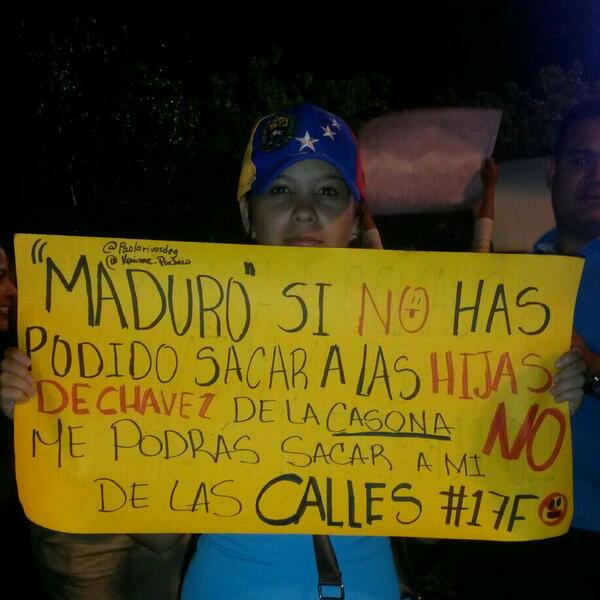 @Paolarivasdeg
"MADURO" SI NO HAS
PODIDO SACAR A LAS HIJAS
DE CHAVEZ DE LA CASONA NO
ME PODRÁS SACAR A MI
DE LAS CALLES #17F